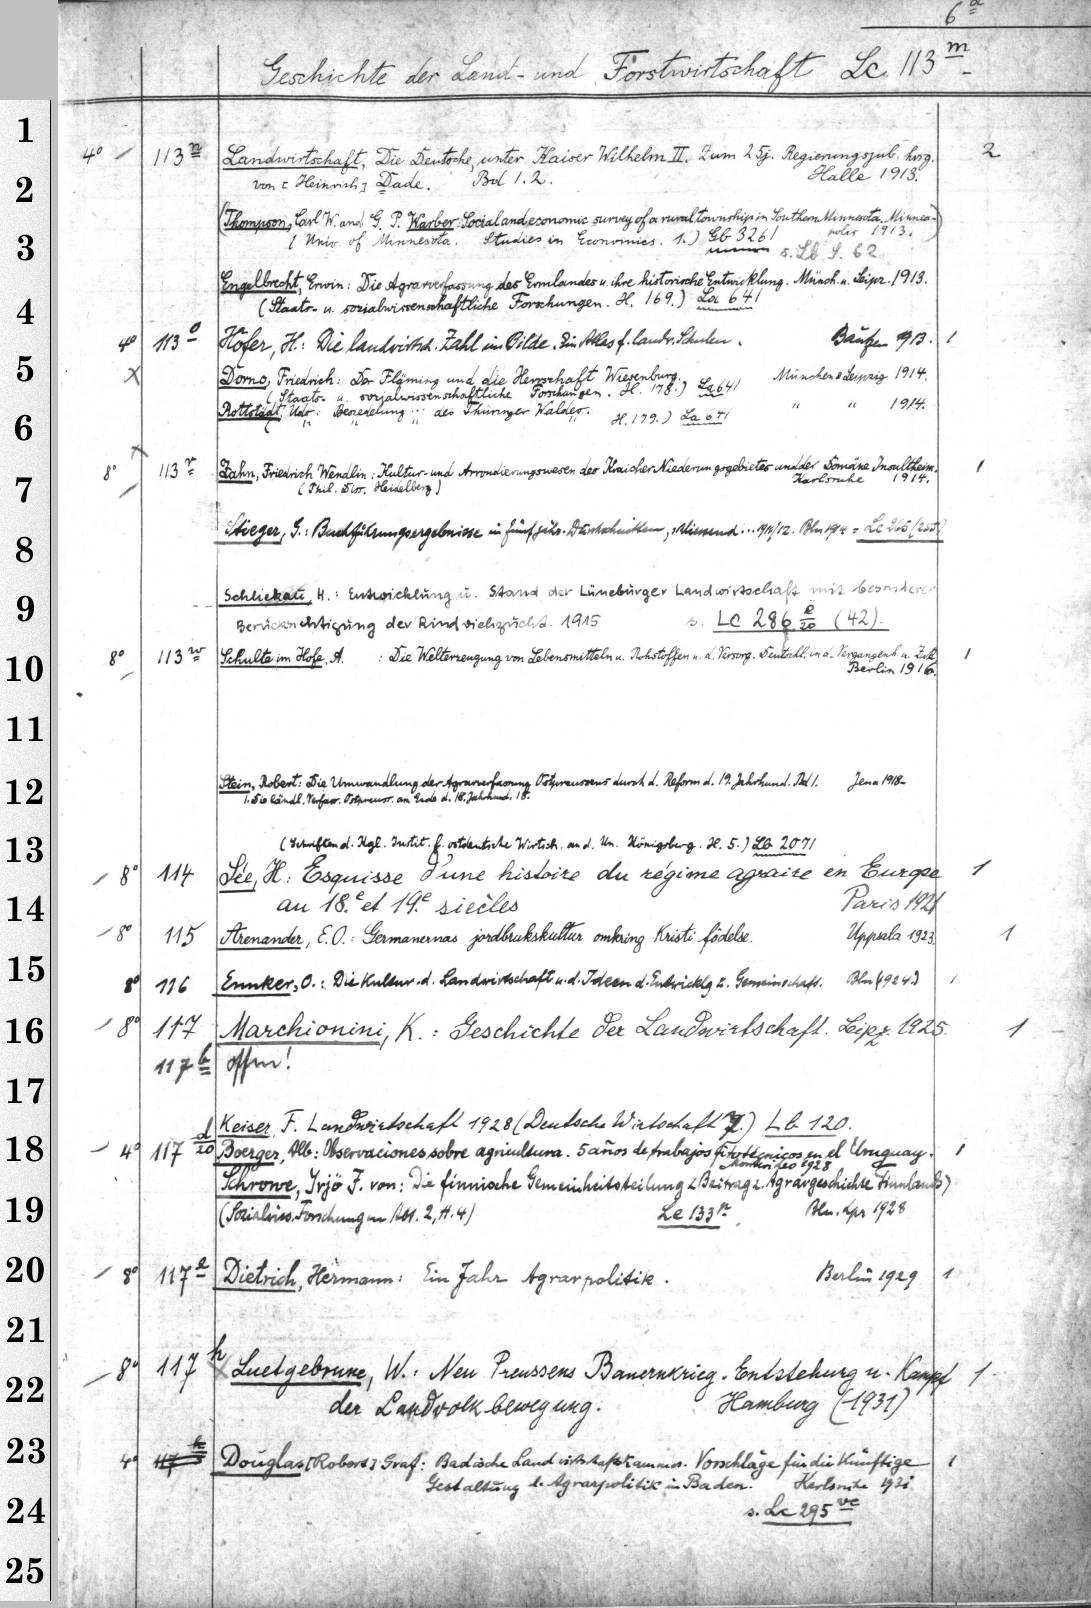 6 a
Geschichte der Land- und Forstwirtschaft Lc 113 m
1
4° 113 n Landwirtschaft, Die Deutsche, unter Kaiser Wilhelm II. Zum 25j. Regierungsjub. hrsg. 2
2 von [Heinrich] Dade. Bd 1.2. Halle 1913.
(Thompson, Carl W. and G. P. Warber: Social and economic survey of a rural township in Southern Minnesota, Minnea-
polis 1913.)
3 (Univ. of Minnesota. Studies in Economics. 1.) Gb 3261
s. Lb S. 62
Engelbrecht, Erwin: Die Agrarverfassung des Ermlandes u. ihre historische Entwicklung. Münch. u. Leipz. 1913.
4 (Staats- u. sozialwissenschaftliche Forschungen. H. 169.) La 641
4° 113 o Höfer, H.: Die landwirtsch. Zahl im Bilde. Ein Atlas f. landw. Schulen. Bautzen 1913. 1
5 Dorno, Friedrich: Der Fläming und die Herrschaft Wiesenburg. München & Leipzig 1914.
(Staats- u. sozialwissenschaftliche Forschungen. H. 178.) La 641
Rottstädt, Udo: Besiedelung des Thüringer Waldes. " " 1914.
6 H. 179.) La 641
8° 113 r Zahn, Friedrich Wendlin: Kultur- und Arrondierungswesen des Kraicher Niederungsgebietes und der Domäne Insultheim. 1
7 (Phil. Diss. Heidelberg) Karlsruhe 1914.
Stieger, G.: Buchführungsergebnisse in fünfjähr. Durchschnitten, 1911/12. Bln 1914 = Lc 265
8
9 Schliekau, H.: Entwicklung u. Stand der Lüneburger Landwirtschaft mit besonderer
Berücksichtigung der Rindviehzucht. 1915 s. Lc 286 e/20 (42).
10 8° 113 w Schulte im Hofe, A. : Die Welterzeugung von Lebensmitteln u. Rohstoffen u. d. Versorg. Deutschl. in d. Vergangenh. u. Zuk. 1
Berlin 1916.
11
12 Stein, Robert: Die Umwandlung der Agrarverfassung Ostpreussens durch d. Reform d. 19. Jahrhund. Bd 1. Jena 1918.
1. Die ländl. Verfass. Ostpreuss. am Ende d. 18. Jahrhund.
13 (Schriften d. Kgl. Instit. f. ostdeutsche Wirtsch. an d. Un. Königsberg. H. 5.) Lb 2071
8° 114 Sée, H.: Esquisse d'une histoire du régime agraire en Europe 1
14 au 18.e et 19.e siècles Paris 1921
8° 115 Arenander, E.O.: Germanernas jordbrukskultur omkring Kristi födelse. Uppsala 1923. 1
15 8° 116 Ennker, O.: Die Kultur d. Landwirtschaft u. d. Ideen d. Entwicklg z. Gemeinschaft. Bln (1924) 1
16 8° 117 Marchionini, K.: Geschichte der Landwirtschaft. Leipz. 1925. 1
117 b offen!
17
Keiser, F. Landwirtschaft 1928 (Deutsche Wirtschaft 7.) Lb 120.
18 4° 117 d/20 Boerger, Alb: Observaciones sobre agricultura. 5 años de trabajos fitotécnicos en el Uruguay. 1
Montevideo 1928
Schrowe, Yrjö F. von: Die finnische Gemeinheitsteilung (Beitrag z. Agrargeschichte Finnlands)
19 (Sozialwiss. Forschungen Abt. 2, H. 4) Le 133 Bln. Lpz 1928
20 8° 117 e Dietrich, Hermann: Ein Jahr Agrarpolitik. Berlin 1929 1
21
8° 117 h Luetgebrune, W.: Neu Preussens Bauernkrieg. Entstehung u. Kampf 1
22 der Landvolkbewegung. Hamburg (1931)
23 4° 117 k Douglas, [Robert] Graf: Badische Landwirtschaftskammer. Vorschläge für die künftige 1
Gestaltung d. Agrarpolitik in Baden. Karlsruhe 1931
24 s. Lc 295 ve
25